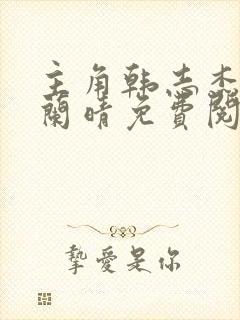 主角韩志木
兰晴免费阅
挚爱是你